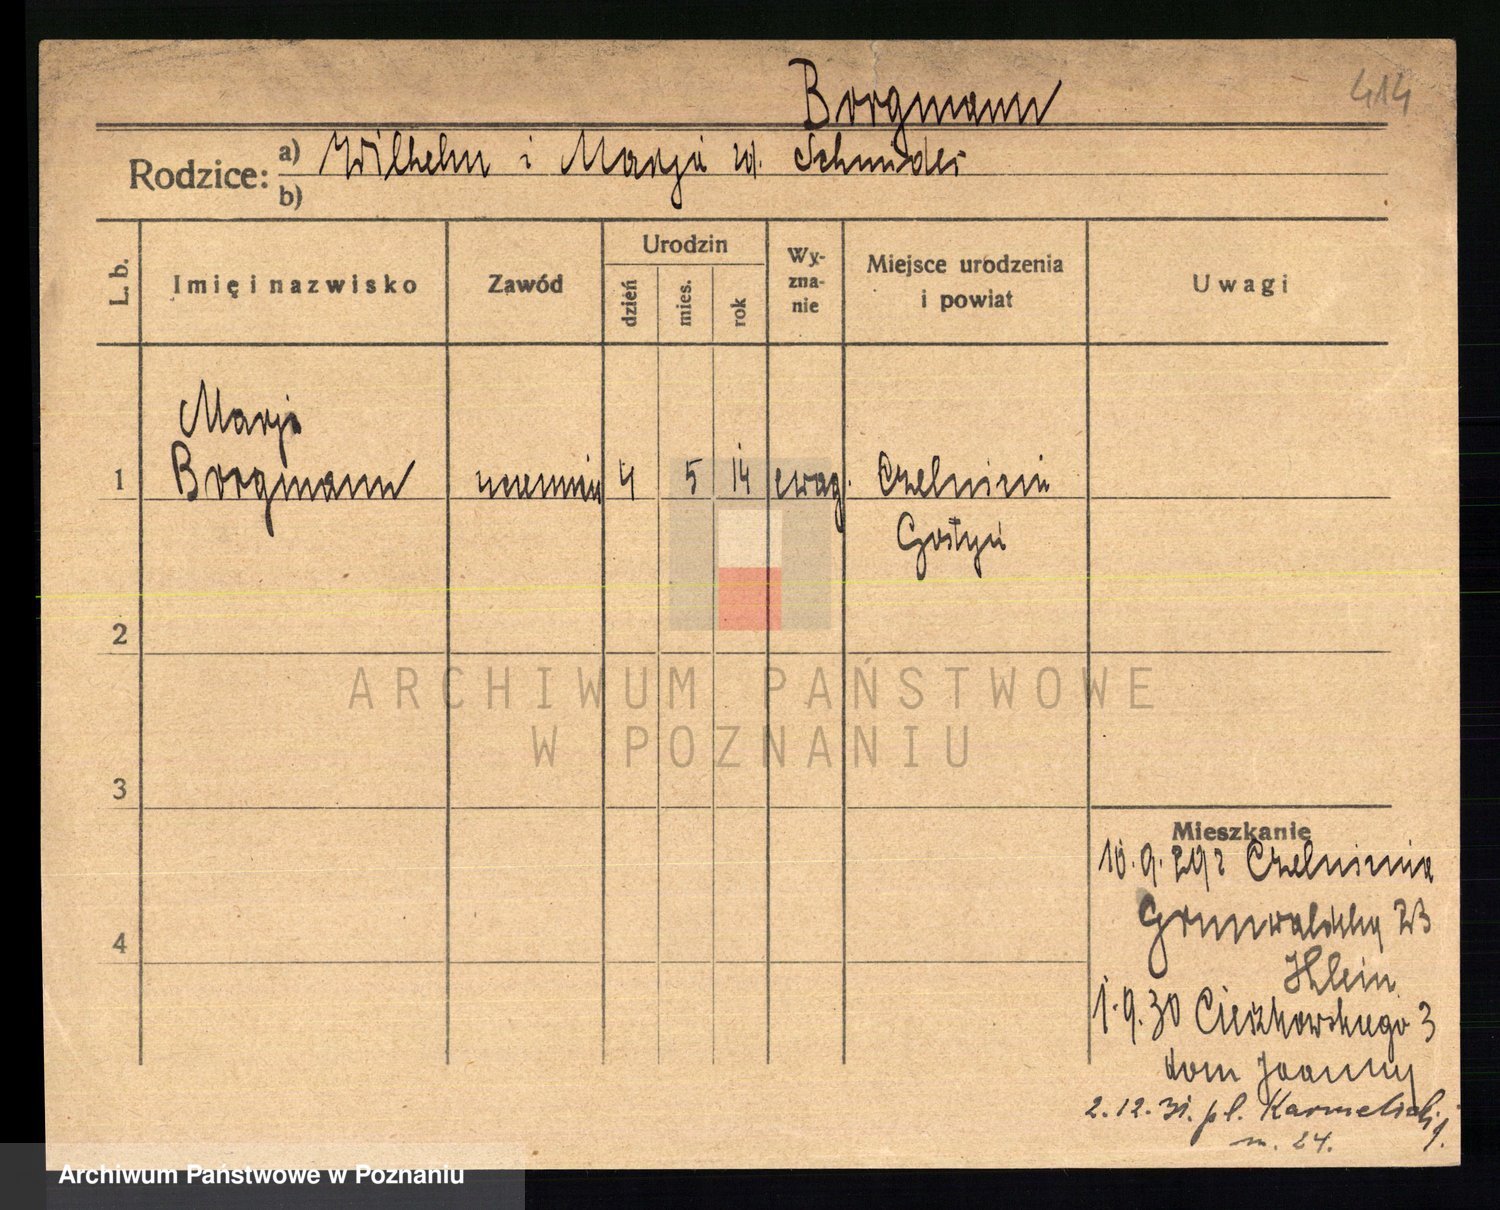 Borgmann
414
Rodzice: a) Wilhelm i Marja rd. Schmidt
b)
L. b.
Imię i nazwisko
Zawód
Urodzin
dzień
mies.
rok
Wy-
zna-
nie
Miejsce urodzenia
i powiat
Uwagi
Marja
1 Borgmann uczennica 4 5 14 ewag. Czeluścin
Gostyń
2
ARCHIWUM PAŃSTWOWE
W POZNANIU
3
4
Mieszkanie
10.9.29 z
Grunwaldzka 23
Klein
1.9.30 Cieszkowskiego 3
dom Joanny
2.12.31. pl. Karmelicki 1.
m. 24.
Archiwum Państwowe w Poznaniu